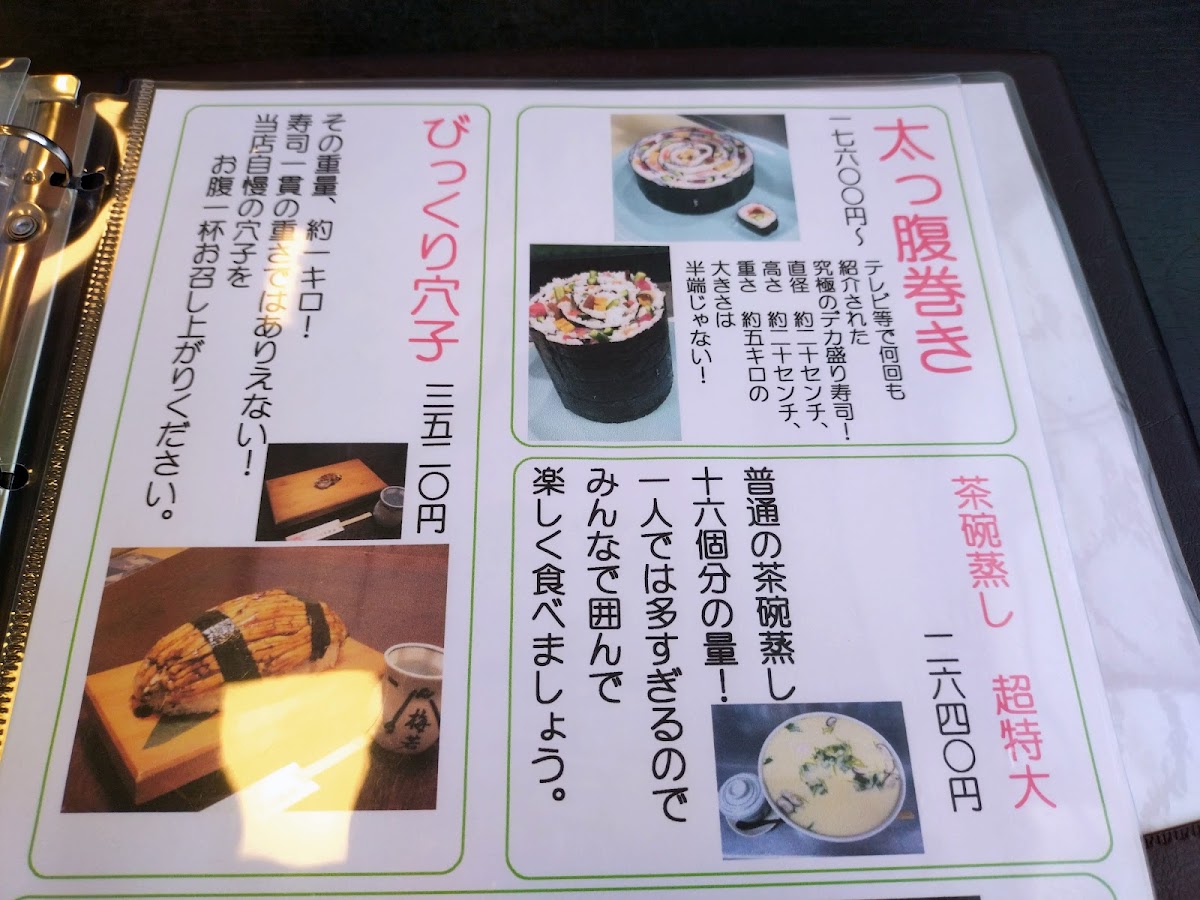 太っ腹巻き
一七六〇〇円～
テレビ等で何回も
紹介された
究極のデカ盛り寿司！
直径　約二十センチ、
高さ　約二十センチ、
重さ　約五キロの
大きさは
半端じゃない！
びっくり穴子　三五二〇円
その重量、約一キロ！
寿司一貫の重さではありえない！
当店自慢の穴子を
お腹一杯お召し上がりください。
梅若
茶碗蒸し　超特大
一二六四〇円
普通の茶碗蒸し
十六個分の量！
一人では多すぎるので
みんなで囲んで
楽しく食べましょう。